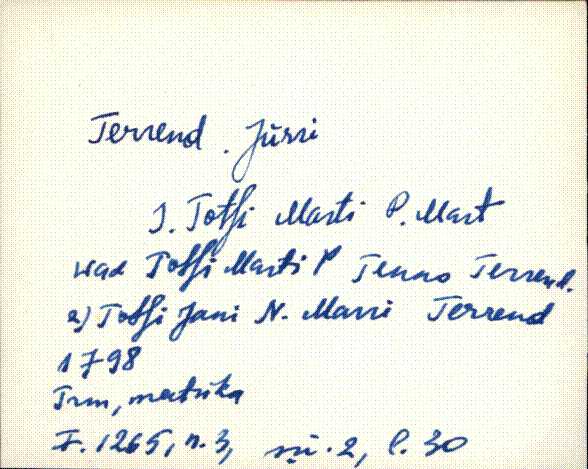 Terrend. Jürri
1. Totsi Marti P. Mart
wad Totsi Marti P Tenno Terrend.
2) Totsi Jani N. Marri Terrend
1798
Trm, meetrika
F. 1265, n. 3, sü. 2, l. 30